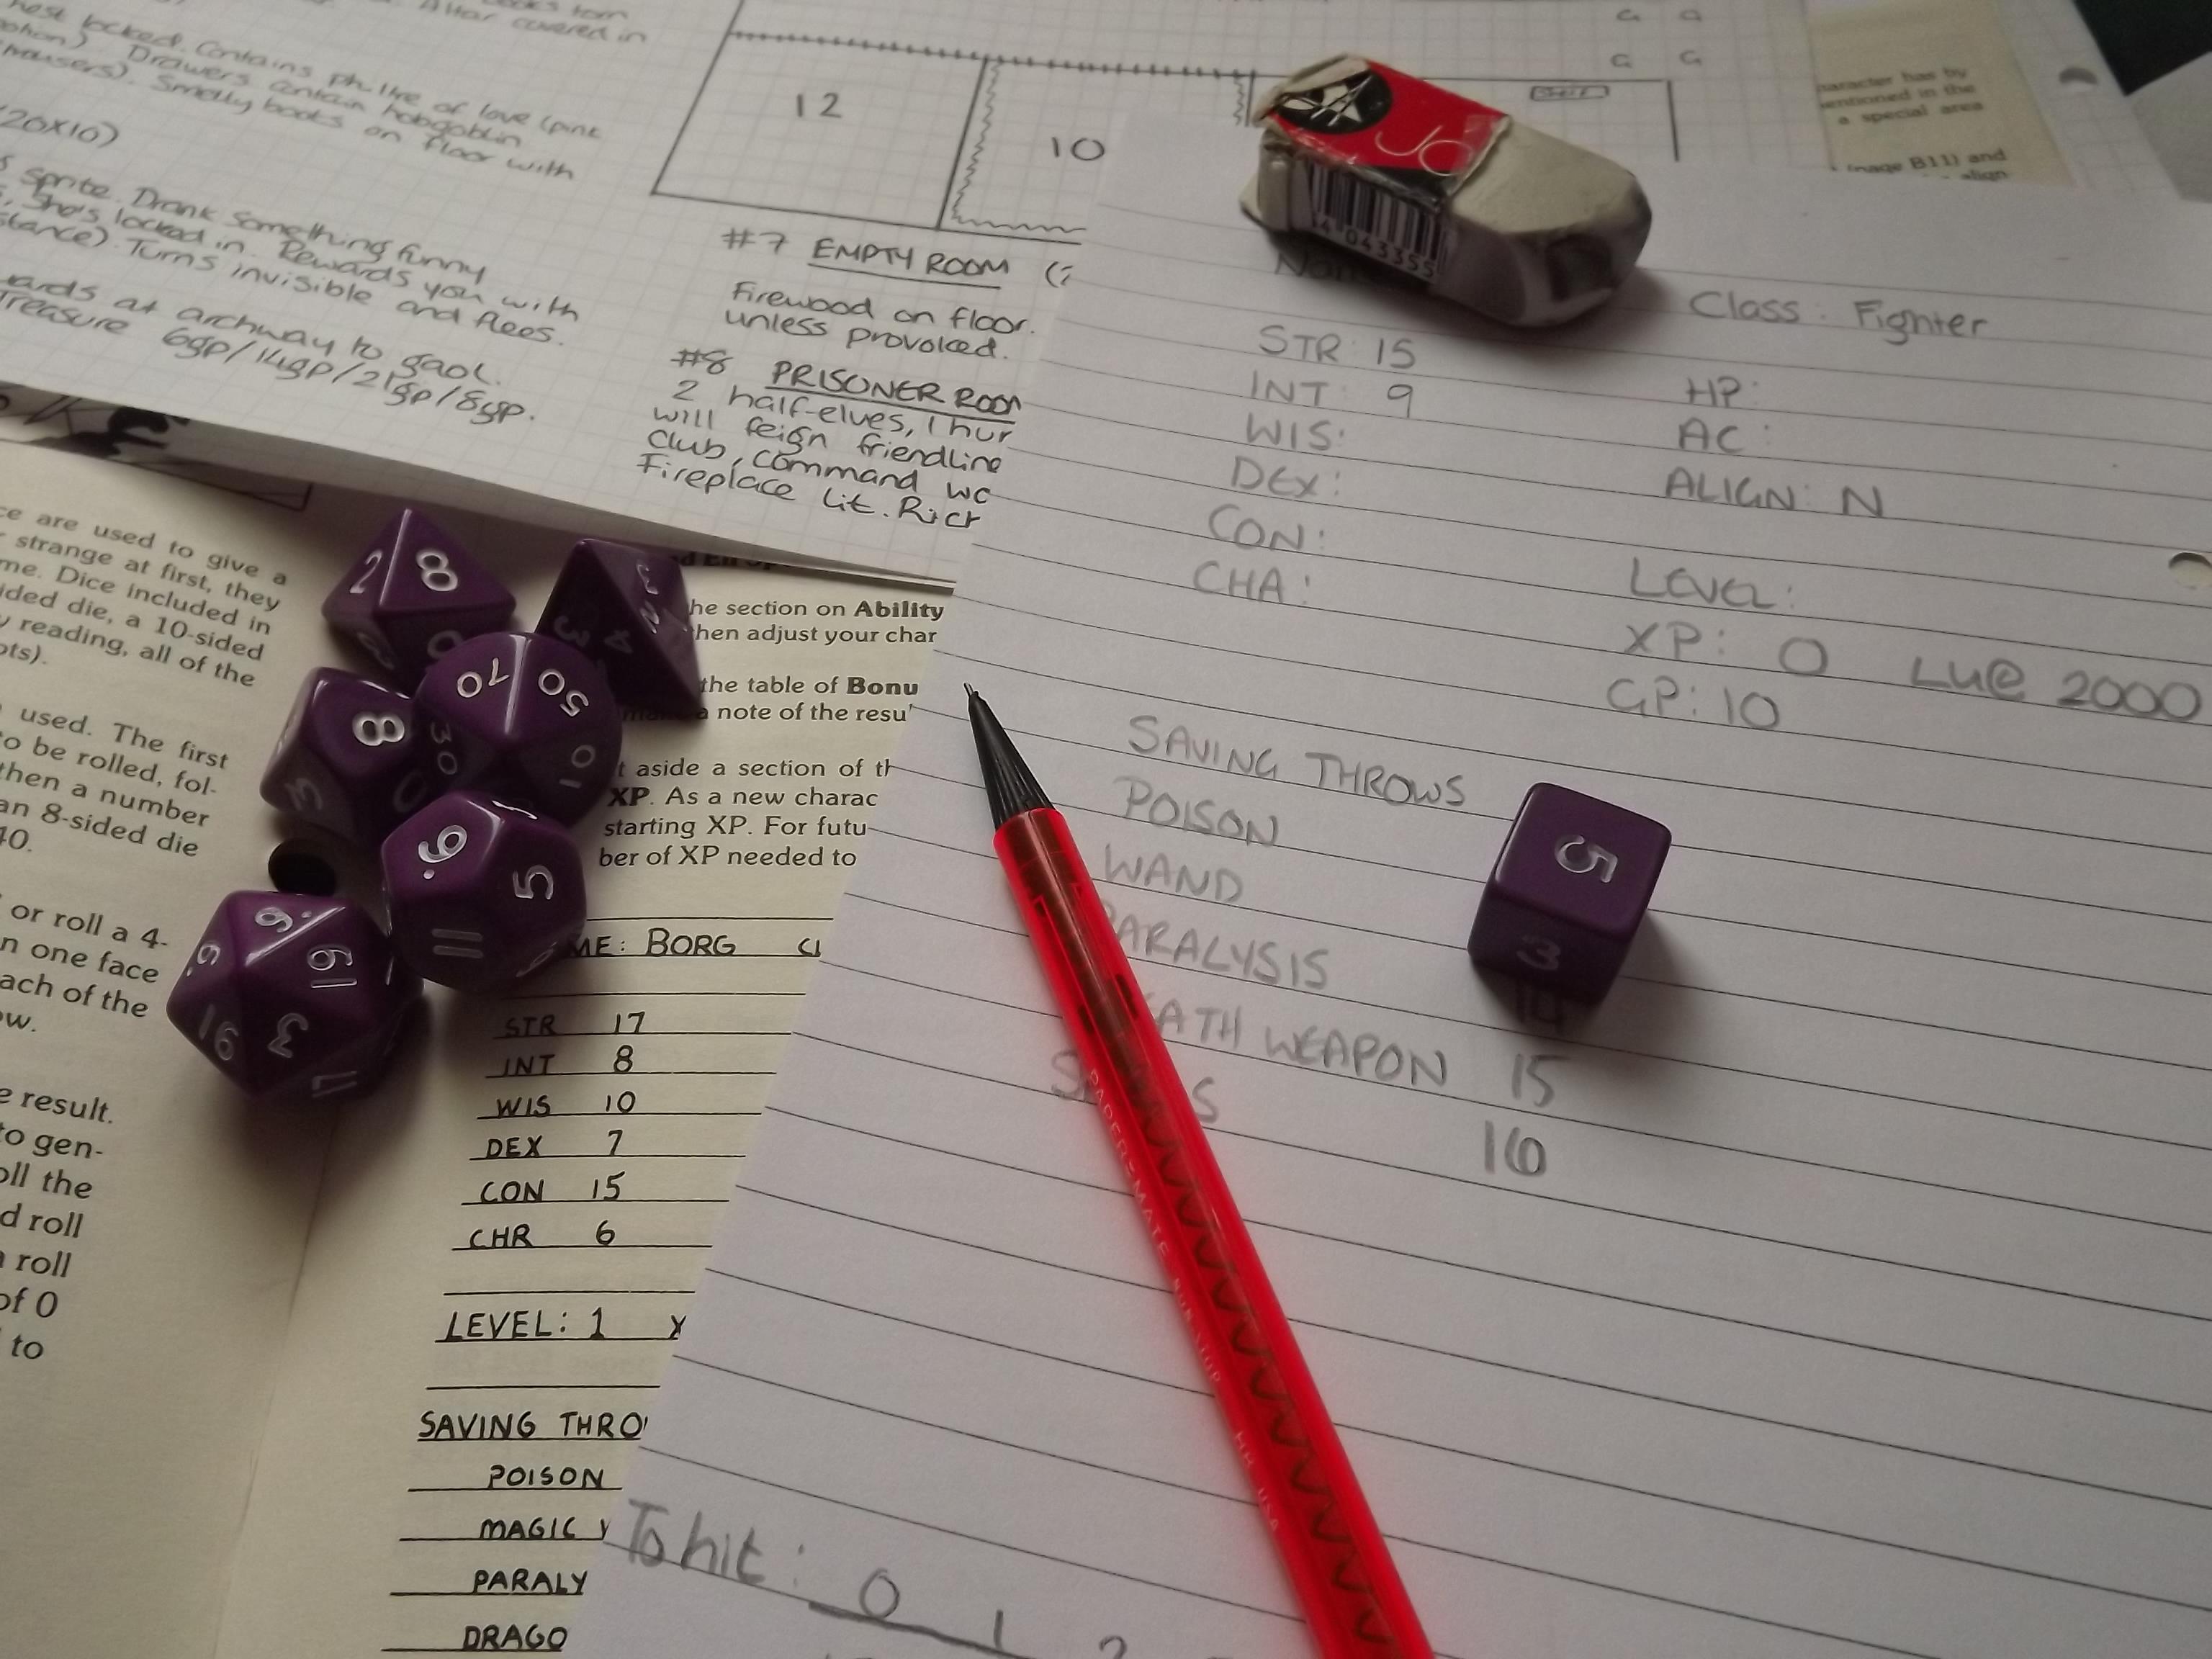 books torn
Altar covered in
chest locked. Contains philtre of love (pink
potion). Drawers contain hobgoblin
trousers). Smelly books on floor with
(20x10)
sprite. Drank something funny
, She's locked in. Rewards you with
stance). Turns invisible and flees.
ards at archway to gaol.
Treasure 6gp/14gp/21gp/8gp.
12
10
#7 EMPTY ROOM (
Firewood on floor.
unless provoked.
#8 PRISONER ROOM
2 half-elves, 1 hur
will feign friendline
club, command wo
Fireplace lit. Rict
G G
G G
haracter has by
entioned in the
a special area
(page B11) and
align-
Jo
4 043355
Class: Fighter
STR: 15
INT: 9
HP:
WIS:
AC:
DEX:
ALIGN: N
CON:
CHA:
LEVEL:
XP: 0 LU@ 2000
GP: 10
SAVING THROWS
POISON
WAND
PARALYSIS
EATH WEAPON 15
S S
16
To hit: 0 1 2
ce are used to give a
strange at first, they
me. Dice included in
ided die, a 10-sided
y reading, all of the
ots).
used. The first
to be rolled, fol-
then a number
an 8-sided die
40.
or roll a 4-
n one face
ach of the
ow.
e result.
to gen-
oll the
d roll
a roll
of 0
to
he section on Ability
then adjust your char
the table of Bonu
make a note of the resul
t aside a section of th
XP. As a new charac
starting XP. For futu
ber of XP needed to
ME: BORG CL
STR 17
INT 8
WIS 10
DEX 7
CON 15
CHR 6
LEVEL: 1 X
SAVING THRO
POISON
MAGIC
PARALY
DRAGO
2 8
3 4
8
70 50
30 10
9. 5
11
9. 19
6.
16 3
17
5
3
PAPER-MATE
HB USA